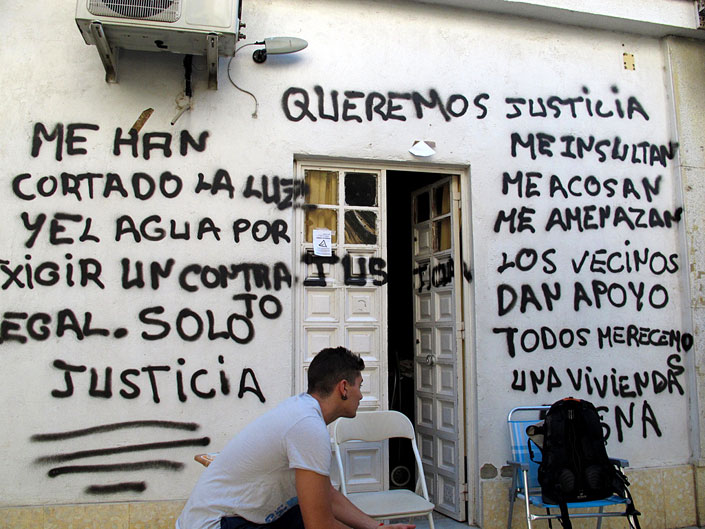 QUEREMOS JUSTICIA
ME HAN
CORTADO LA LUZ
Y EL AGUA POR
EXIGIR UN CONTRA
TO
EGAL. SOLO
JUSTICIA
JUSTICIA
ME INSULTAN
ME ACOSAN
ME AMENAZAN
LOS VECINOS
DAN APOYO
TODOS MERECEMO
S
UNA VIVIENDA
GNA